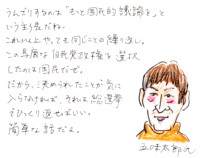 うんざりするのは「もっと国民的議論を」と
いう主張だね。
これ以上やっても同じことの繰り返し。
この馬鹿な自民党政権を選択
したのは国民だぜ。
だから、決められたことが気に
入らなければ、それは総選挙
でひっくり返せばいい。
簡単な話だよ。
五味太郎氏